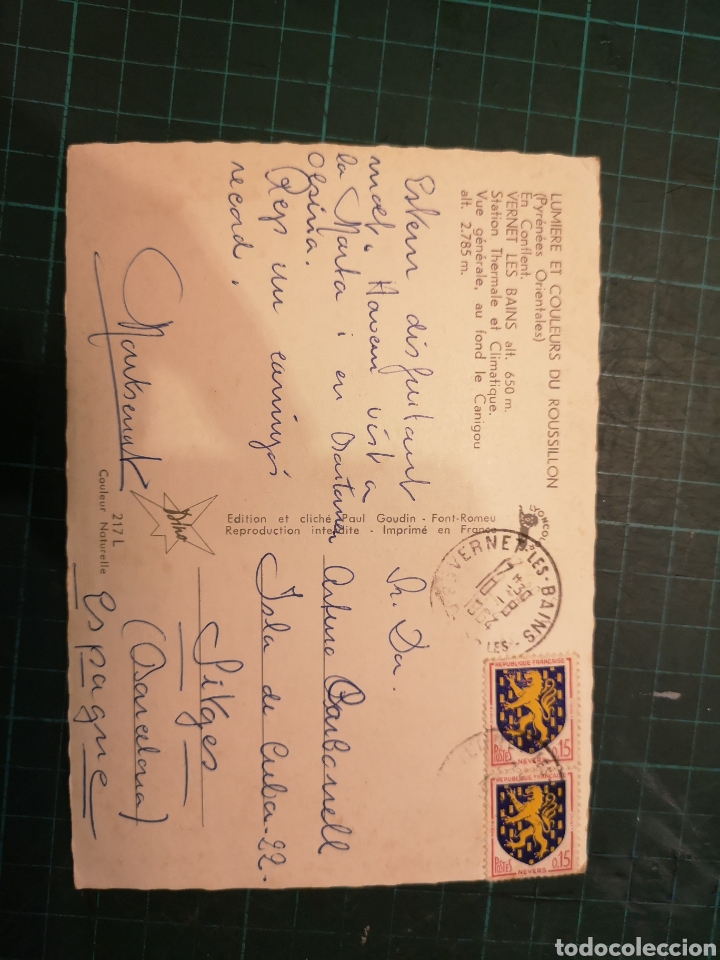 LUMIERE ET COULEURS DU ROUSSILLON
(Pyrénées Orientales)
En Conflent.
VERNET LES BAINS alt. 650 m.
Station Thermale et Climatique.
Vue générale, au fond le Canigou
alt. 2.785 m.
Estem disfrutant
molt. Havem vist a
la Marta i en
Rep un carinyós
record.
Montserrat
Edition et cliché Paul Goudin - Font-Romeu
Reproduction interdite - Imprimé en France
217 L
Couleur Naturelle
VERNET-LES-BAINS
17 H 30
10-8
1964
REPUBLIQUE FRANÇAISE
POSTES
0,15
NEVERS
REPUBLIQUE FRANÇAISE
POSTES
0,15
NEVERS
Sr. Dn.
Arturo Carbonell
Isla de Cuba-22.
Sitges
(Barcelona)
Espagne
todocoleccion